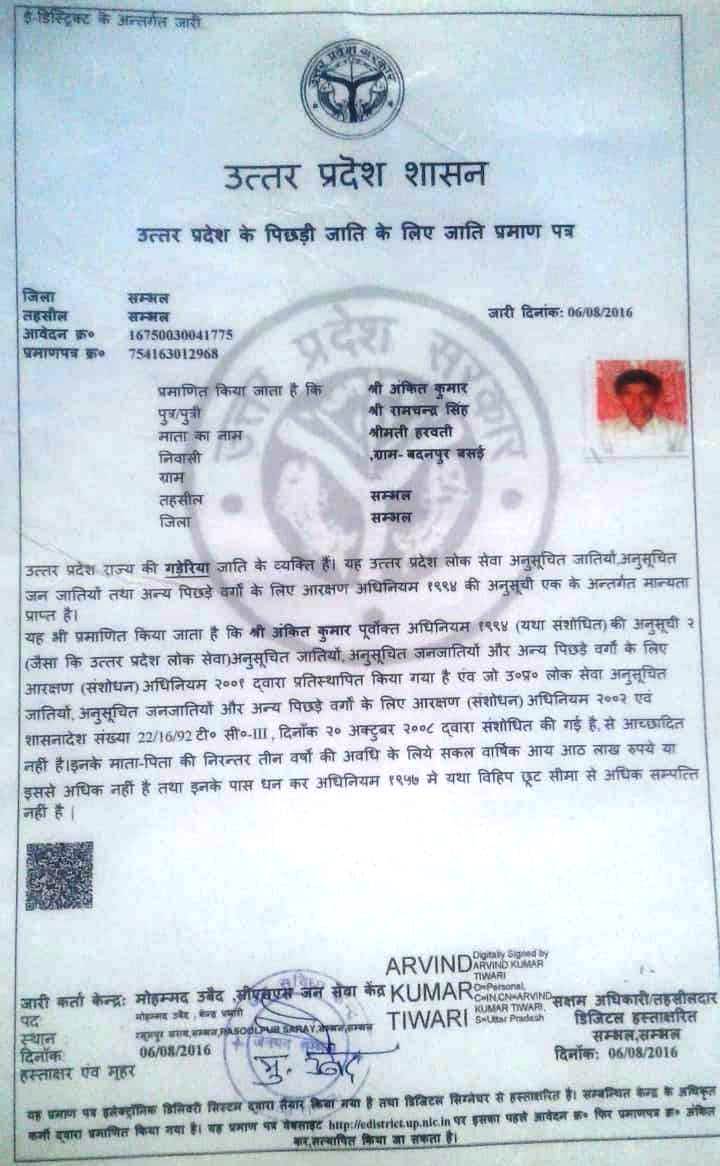 ई-डिस्ट्रिक्ट के अन्तर्गत जारी
उत्तर प्रदेश सरकार
उत्तर प्रदेश शासन
उत्तर प्रदेश के पिछड़ी जाति के लिए जाति प्रमाण पत्र
जिला सम्भल
तहसील सम्भल जारी दिनांक: 06/08/2016
आवेदन क्र० 16750030041775
प्रमाणपत्र क्र० 754163012968
प्रमाणित किया जाता है कि श्री अंकित कुमार
पुत्र/पुत्री श्री रामचन्द्र सिंह
माता का नाम श्रीमती हरवती
निवासी ,ग्राम- बदनपुर बसई
ग्राम
तहसील सम्भल
जिला सम्भल
उत्तर प्रदेश राज्य की गड़ेरिया जाति के व्यक्ति हैं। यह उत्तर प्रदेश लोक सेवा अनुसूचित जातियों,अनुसूचित
जन जातियों तथा अन्य पिछड़े वर्गों के लिए आरक्षण अधिनियम १९९४ की अनुसूची एक के अन्तर्गत मान्यता
प्राप्त है।
यह भी प्रमाणित किया जाता है कि श्री अंकित कुमार पूर्वोक्त अधिनियम १९९४ (यथा संशोधित) की अनुसूची २
(जैसा कि उत्तर प्रदेश लोक सेवा)अनुसूचित जातियों, अनुसूचित जनजातियों और अन्य पिछड़े वर्गों के लिए
आरक्षण (संशोधन) अधिनियम २००१ द्वारा प्रतिस्थापित किया गया है एंव जो उ०प्र० लोक सेवा अनुसूचित
जातियों, अनुसूचित जनजातियों और अन्य पिछड़े वर्गों के लिए आरक्षण (संशोधन) अधिनियम २००२ एवं
शासनादेश संख्या 22/16/92 टी० सी०-III , दिनाँक २० अक्टुबर २००८ द्वारा संशोधित की गई है, से आच्छादित
नहीं है।इनके माता-पिता की निरन्तर तीन वर्षो की अवधि के लिये सकल वार्षिक आय आठ लाख रुपये या
इससे अधिक नहीं है तथा इनके पास धन कर अधिनियम १९५७ मे यथा विहिप छूट सीमा से अधिक सम्पत्ति
नहीं है ।
ARVIND KUMAR TIWARI
Digitally Signed by
ARVIND KUMAR
TIWARI
O=Personal,
C=IN,CN=ARVIND
KUMAR TIWARI,
S=Uttar Pradesh
जारी कर्ता केन्द्र: मोहम्मद उबैद ,सीएसएस जन सेवा केंद्र सक्षम अधिकारी/तहसीलदार
पद मोहम्मद उबैद , केन्द्र प्रभारी डिजिटल हस्ताक्षरित
स्थान रसूलपुर सराय,सम्भल,RASOOLPUR SARAY,सम्भल,सम्भल सम्भल,सम्भल
दिनाँक: 06/08/2016 दिनाँक: 06/08/2016
हस्ताक्षर एंव मुहर मु. उबैद
यह प्रमाण पत्र इलेक्ट्रॉनिक डिलिवरी सिस्टम द्वारा तैयार किया गया है तथा डिजिटल सिग्नेचर से हस्ताक्षरित है। सम्बन्धित केन्द्र के अधिकृत
कर्मी द्वारा प्रमाणित किया गया है। यह प्रमाण पत्र वेबसाइट http://edistrict.up.nic.in पर इसका पहले आवेदन क्र० फिर प्रमाणपत्र क्र० अंकित
कर,सत्यापित किया जा सकता है।